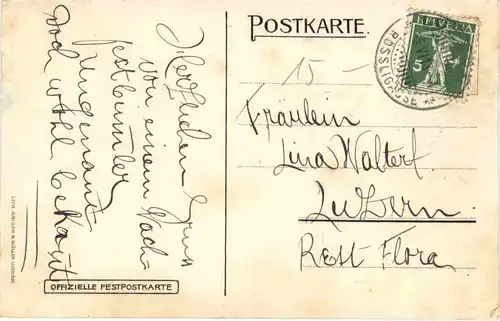 POSTKARTE.
HELVETIA
5
15 –
Fräulein
Lina Walter
Luzern.
Rest. Flora
Herzlichen Gruss
von einem Nach-
Ungenannt
doch wohl bekannt
OFFIZIELLE FESTPOSTKARTE